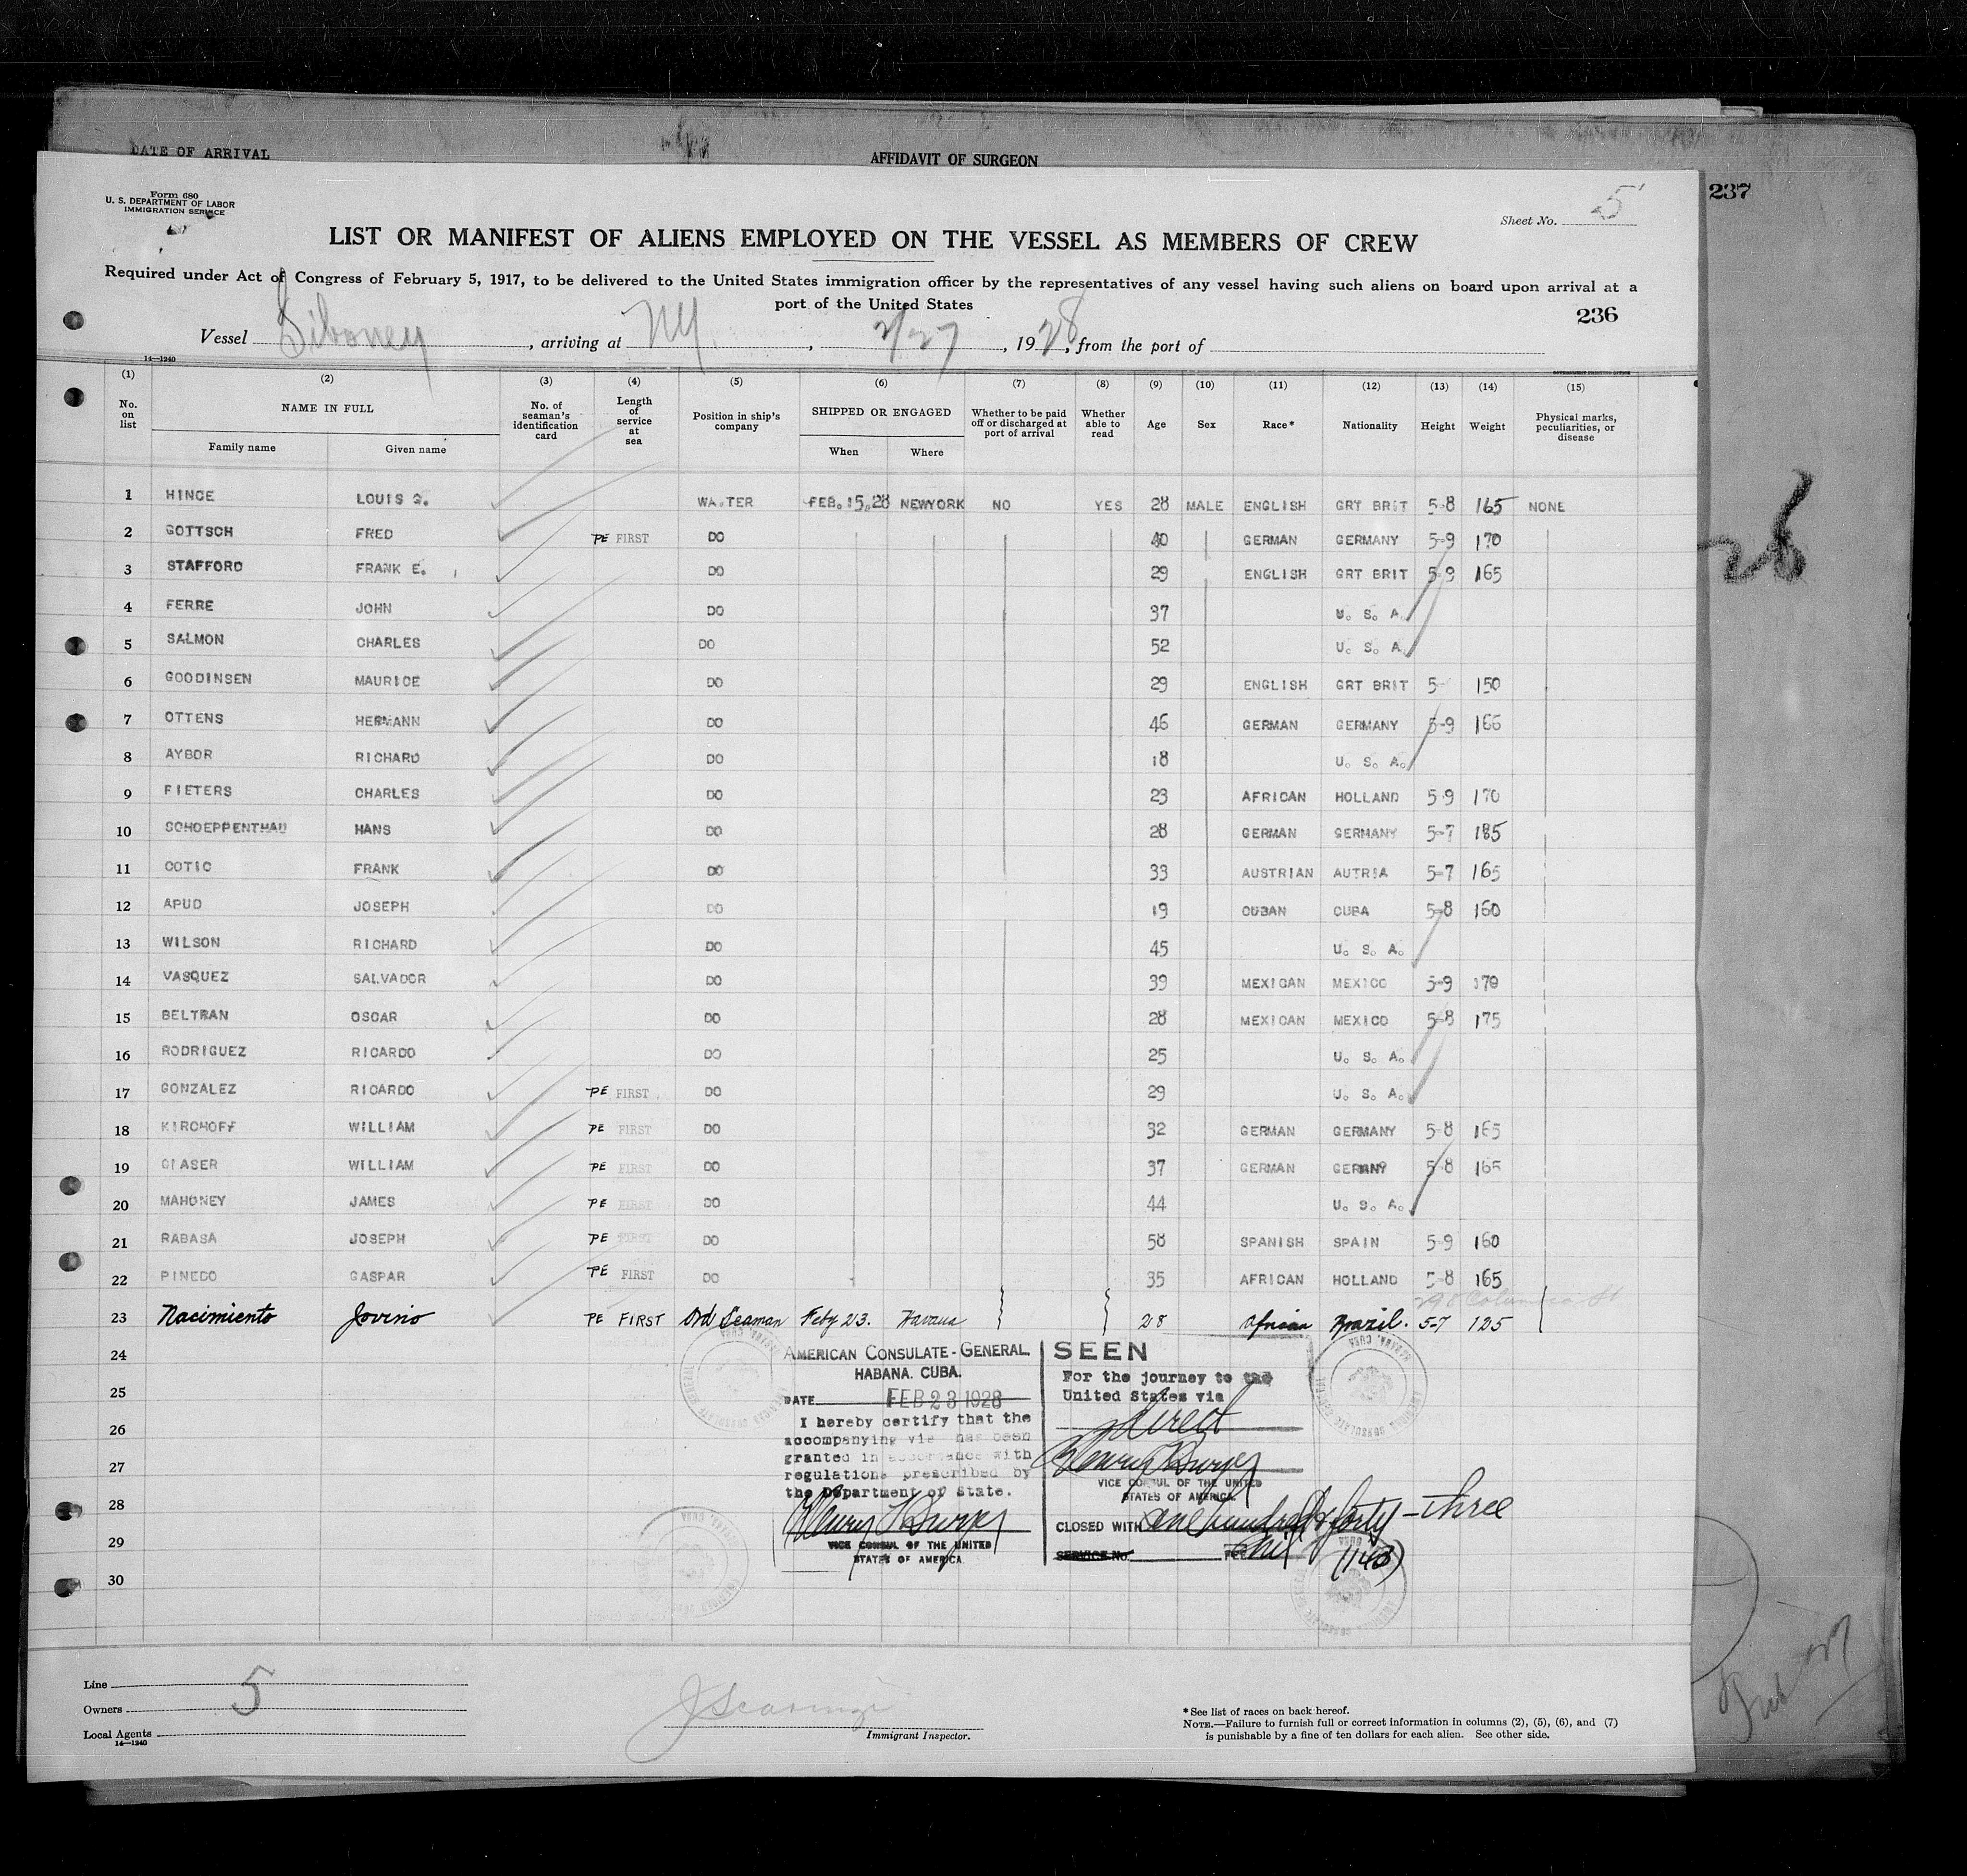 DATE OF ARRIVAL
AFFIDAVIT OF SURGEON
237
Form 680
U. S. DEPARTMENT OF LABOR
IMMIGRATION SERVICE
Sheet No. 5
LIST OR MANIFEST OF ALIENS EMPLOYED ON THE VESSEL AS MEMBERS OF CREW
Required under Act of Congress of February 5, 1917, to be delivered to the United States immigration officer by the representatives of any vessel having such aliens on board upon arrival at a
port of the United States
236
Vessel Siboney, arriving at NY, 2/27, 1928, from the port of
14—1240
(1) (2) (3) (4) (5) (6) (7) (8) (9) (10) (11) (12) (13) (14) (15)
No. on list NAME IN FULL No. of seaman's identification card Length of service at sea Position in ship's company SHIPPED OR ENGAGED Whether to be paid off or discharged at port of arrival Whether able to read Age Sex Race* Nationality Height Weight Physical marks, peculiarities, or disease
Family name Given name When Where
1 HINCE LOUIS G. WAITER FEB. 15,28 NEWYORK NO YES 28 MALE ENGLISH GRT BRIT 5-8 165 NONE
2 GOTTSCH FRED PE FIRST DO 40 GERMAN GERMANY 5-9 170
3 STAFFORD FRANK E. DO 29 ENGLISH GRT BRIT 5-9 165
4 FERRE JOHN DO 37 U. S. A.
5 SALMON CHARLES DO 52 U. S. A.
6 GOODINSEN MAURICE DO 29 ENGLISH GRT BRIT 5- 150
7 OTTENS HERMANN DO 46 GERMAN GERMANY 5-9 166
8 AYBOR RICHARD DO 18 U. S. A.
9 PIETERS CHARLES DO 23 AFRICAN HOLLAND 5-9 170
10 SCHOEPPENTHAU HANS DO 28 GERMAN GERMANY 5-7 185
11 COTIC FRANK DO 33 AUSTRIAN AUTRIA 5-7 165
12 APUD JOSEPH DO 19 CUBAN CUBA 5-8 160
13 WILSON RICHARD DO 45 U. S. A.
14 VASQUEZ SALVADOR DO 39 MEXICAN MEXICO 5-9 170
15 BELTRAN OSCAR DO 28 MEXICAN MEXICO 5-8 175
16 RODRIGUEZ RICARDO DO 25 U. S. A.
17 GONZALEZ RICARDO PE FIRST DO 29 U. S. A.
18 KIRCHOFF WILLIAM PE FIRST DO 32 GERMAN GERMANY 5-8 165
19 GLASER WILLIAM PE FIRST DO 37 GERMAN GERMNY 5-8 165
20 MAHONEY JAMES PE FIRST DO 44 U. S. A.
21 RABASA JOSEPH PE FIRST DO 58 SPANISH SPAIN 5-9 160
22 PINEDO GASPAR PE FIRST DO 35 AFRICAN HOLLAND 5-8 165
Columbia St
23 Nacimiento Jovino PE FIRST Ord Seaman Feby 23. Havana 28 African Brazil. 5-7 125
24
25
26
27
28
29
30
AMERICAN CONSULATE-GENERAL.
HABANA. CUBA.
DATE FEB 23 1928
I hereby certify that the
accompanying visa has been
granted in accordance with
regulations prescribed by
the Department of State.
VICE CONSUL OF THE UNITED
STATES OF AMERICA.
SEEN
For the journey to the
United States via
direct
VICE CONSUL OF THE UNITED
STATES OF AMERICA.
CLOSED WITH one hundred & forty-three
SERVICE No. FEE
(143)
28
Line
Owners 5
Local Agents
14—1240
Immigrant Inspector.
* See list of races on back hereof.
NOTE.—Failure to furnish full or correct information in columns (2), (5), (6), and (7)
is punishable by a fine of ten dollars for each alien. See other side.